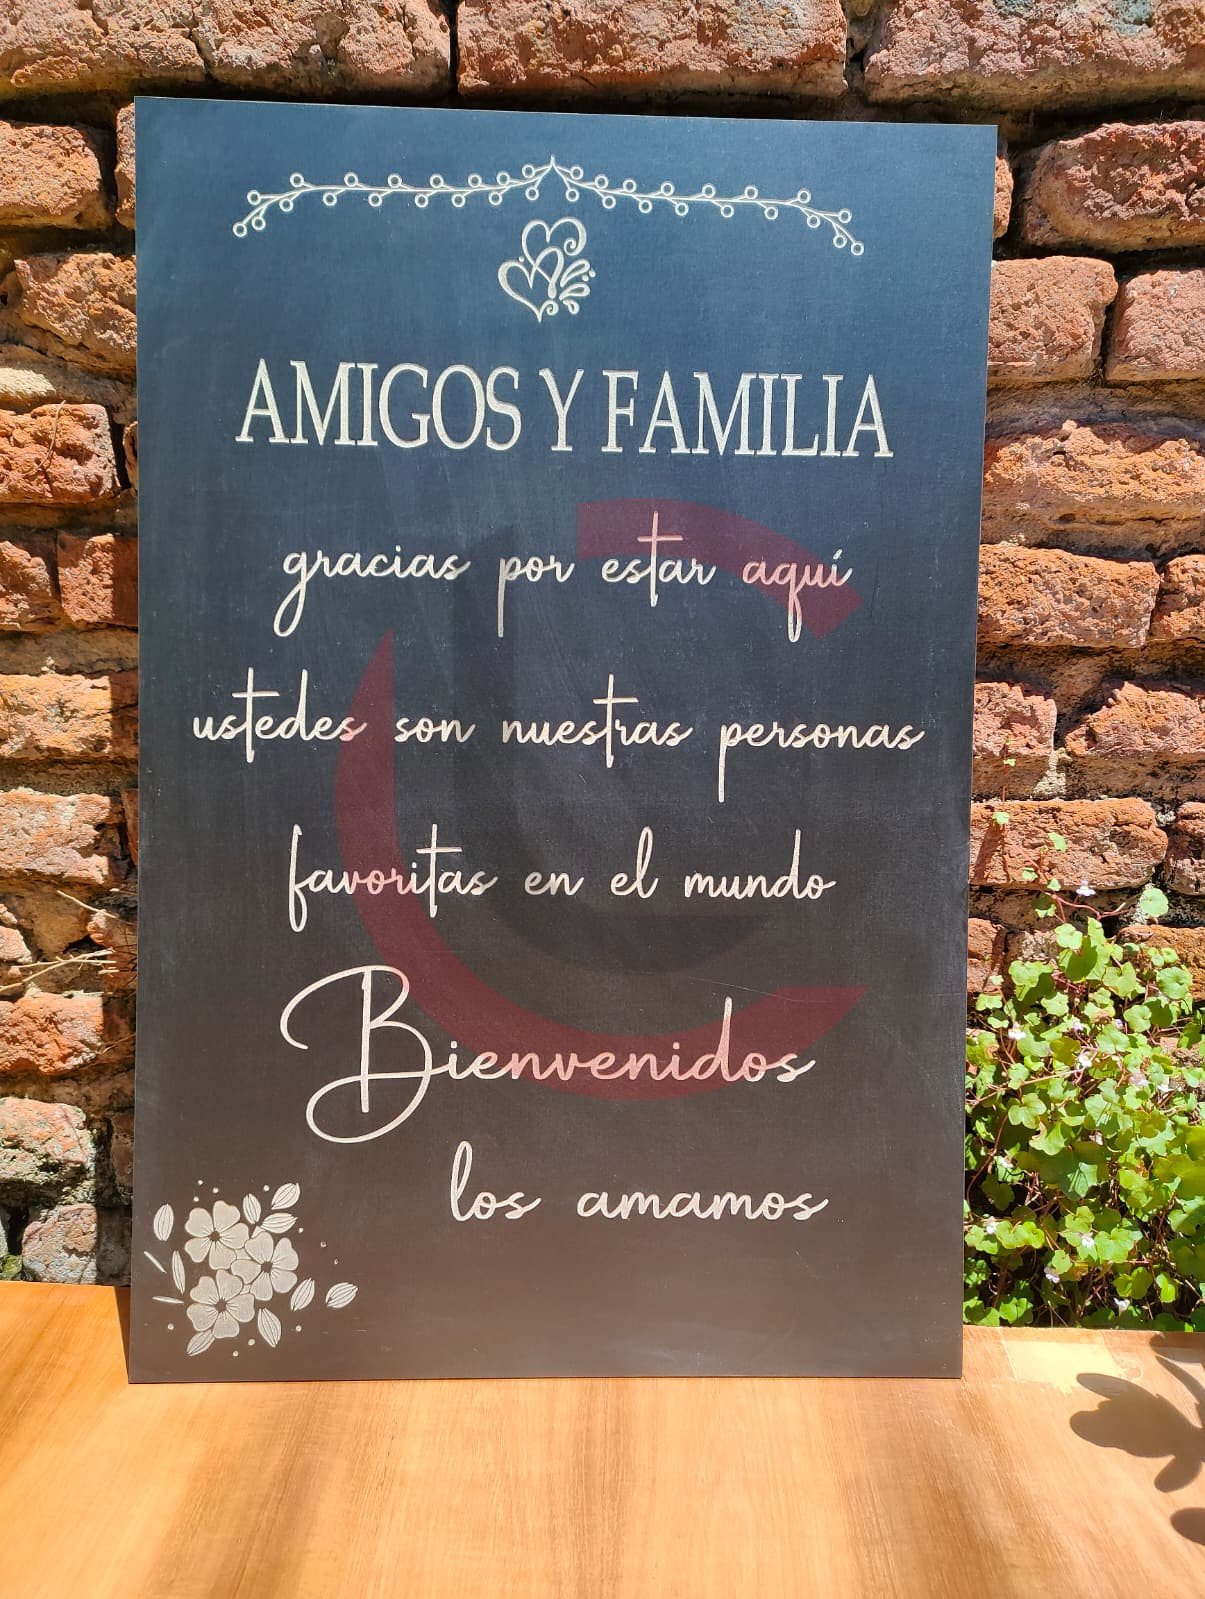 AMIGOS Y FAMILIA
gracias por estar aquí
ustedes son nuestras personas
favoritas en el mundo
Bienvenidos
los amamos